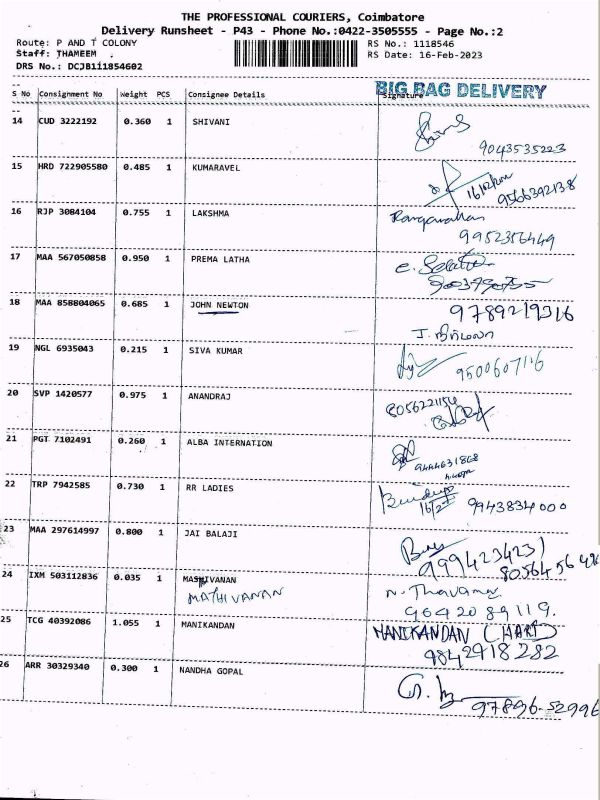 THE PROFESSIONAL COURIERS, Coimbatore
Delivery Runsheet - P43 - Phone No.:0422-3505555 - Page No.:2
Route: P AND T COLONY RS No.: 1118546
Staff: THAMEEM . RS Date: 16-Feb-2023
DRS No.: DCJB111854602
BIG BAG DELIVERY
S No Consignment No Weight PCS Consignee Details Signature
14 CUD 3222192 0.360 1 SHIVANI
9043535223
15 HRD 722905580 0.485 1 KUMARAVEL
9566392138
16 RJP 3084104 0.755 1 LAKSHMA
9952356449
17 MAA 567050858 0.950 1 PREMA LATHA
18 MAA 858804065 0.685 1 JOHN NEWTON 9789219316
J. நிர்மலா
19 NGL 6935043 0.215 1 SIVA KUMAR
9500607116
20 SVP 1420577 0.975 1 ANANDRAJ
8056221154
21 PGT 7102491 0.260 1 ALBA INTERNATION
9444631868
22 TRP 7942585 0.730 1 RR LADIES
9943834000
23 MAA 297614997 0.800 1 JAI BALAJI
9994234231
24 IXM 503112836 0.035 1 MATHIVANAN
MATHIVANAN
9042089119.
25 TCG 40392086 1.055 1 MANIKANDAN MANIKANDAN (HARI)
9842918282
26 ARR 30329340 0.300 1 NANDHA GOPAL
97896-52996